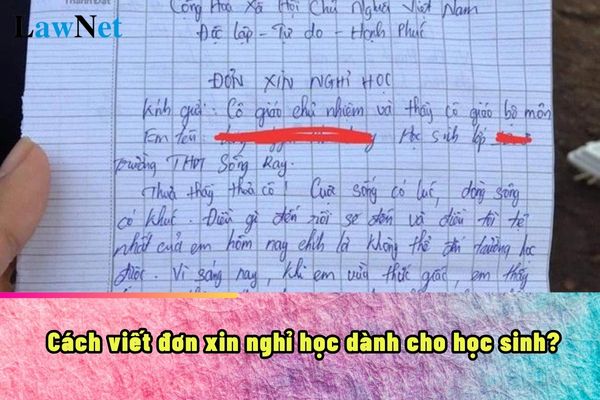 Thành Đạt
LawNet
Cộng Hòa Xã Hội Chủ Nghĩa Việt Nam
Độc Lập - Tự do - Hạnh Phúc
ĐƠN XIN NGHỈ HỌC
Kính gửi: Cô giáo chủ nhiệm và thầy cô giáo bộ môn
Em tên Học sinh lớp
trường THPT Sông Ray.
Thưa thầy thưa cô! Cuộc sống có lúc, dòng sông
có khúc. Điều gì đến rồi sẽ đến và điều tồi tệ
nhất của em hôm nay chính là không thể đến trường học
được. Vì sáng nay, khi em vừa thức giấc, em thấy
Cách viết đơn xin nghỉ học dành cho học sinh?